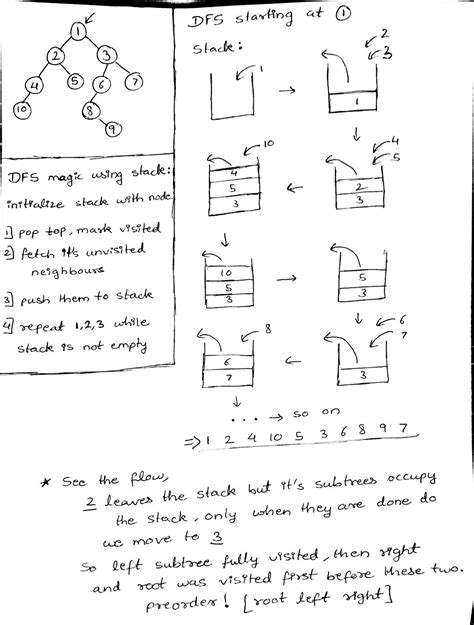 DFS starting at ①
Stack:
1
2
3
4
5
6
7
10
8
9
DFS magic using stack:
initialize stack with node
1] pop top, mark visited
2] fetch it's unvisited
neighbours
3] push them to stack
4] repeat 1,2,3 while
stack is not empty
1
2
3
1
10
4
5
3
4
5
2
3
10
5
3
5
3
8
6
7
6
7
3
... → so on
=> 1 2 4 10 5 3 6 8 9 7
* See the flow,
2 leaves the stack but it's subtrees occupy
the stack, only when they are done do
we move to 3
So left subtree fully visited, then right
and root was visited first before these two.
preorder! [root left right]